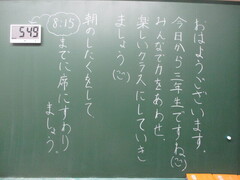 おはようございます。
今日から三年生ですね
みんなで力をあわせ、
楽しいクラスにしていき
ましょう
朝のしたくをして
8:15までに席にすわり
ましょう。
5:49